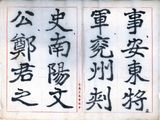 事安東將
軍兖州刾
史南陽文
公鄭君之